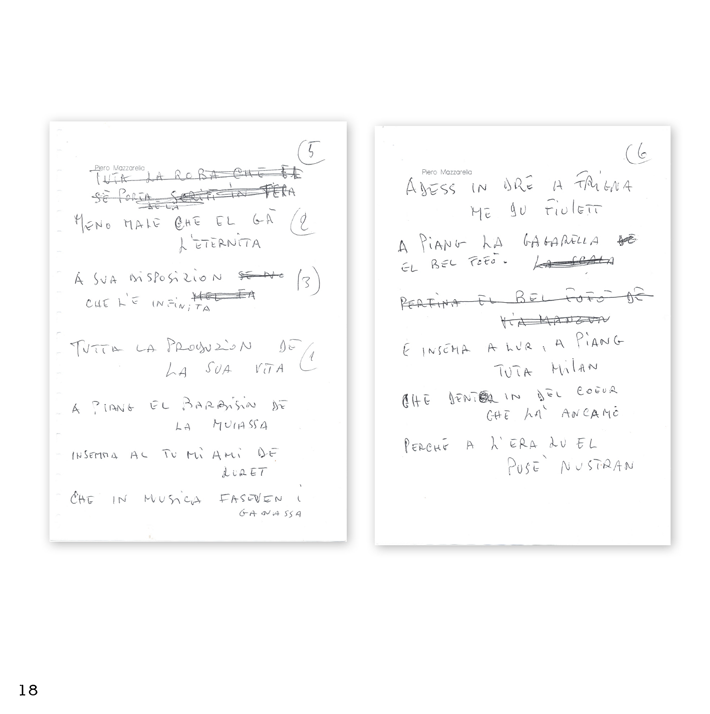 5
Piero Mazzarella
TUTA LA ROBA CHE EL
SE PORTA SCRITT IN TERA
DE LA
MENO MALE CHE EL GÀ (2
L'ETERNITA
A SUA DISPOSIZION SE NO (3)
CHE L'È INFINITA
TUTTA LA PRODUZION DE (1
LA SUA VITA
A PIANG EL BARBISIN DE
LA MUIASSA
INSEMMA AL TU MI AMI DE
LURET
CHE IN MUSICA FASEVEN I
GANASSA
(6
Piero Mazzarella
ADESS IN DRE A FRIGNA
ME DU FIULETT
A PIANG LA GAGARELLA DE
EL BEL FOFÒ. LA SCALA
PERFINA EL BEL FOFÒ DE
VIA MANZON
E INSEMA A LUR, A PIANG
TUTA MILAN
CHE DENTER IN DEL COEUR
CHE L'À ANCAMÒ
PERCHÈ A L'ERA LU EL
PUSÈ NUSTRAN
18